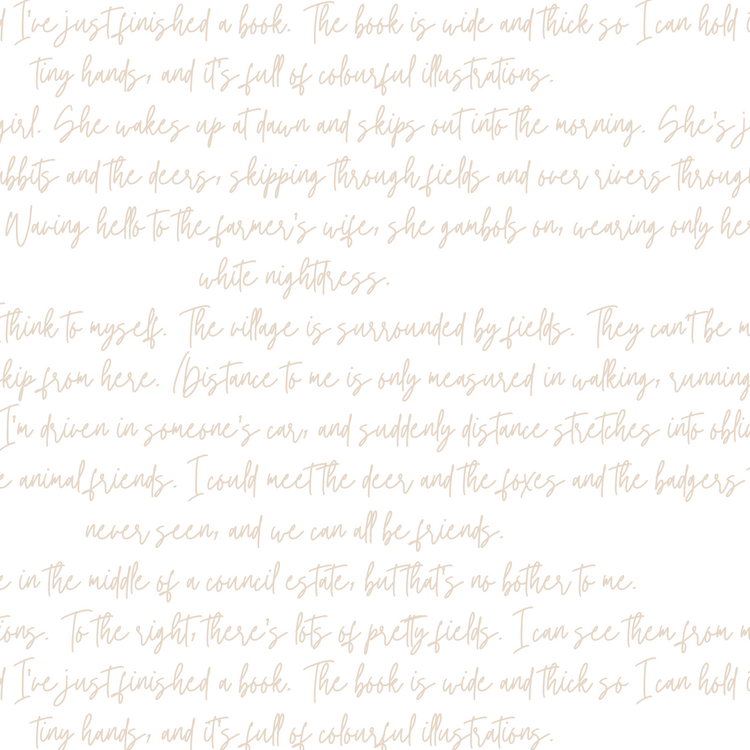 I've just finished a book. The book is wide and thick so I can hold
tiny hands, and it's full of colourful illustrations.
girl. She wakes up at dawn and skips out into the morning. She's
and the deers, skipping through fields and over rivers
Waving hello to the farmer's wife, she gambols on, wearing only
white nightdress.
think to myself. The village is surrounded by fields. They can't be
from here. (Distance to me is only measured in walking, running
I'm driven in someone's car, and suddenly distance stretches into
animal friends. I could meet the deer and the foxes and the badgers
never seen, and we can all be friends.
in the middle of a council estate, but that's no bother to me.
To the right, there's lots of pretty fields. I can see them from
I've just finished a book. The book is wide and thick so I can hold
tiny hands, and it's full of colourful illustrations.